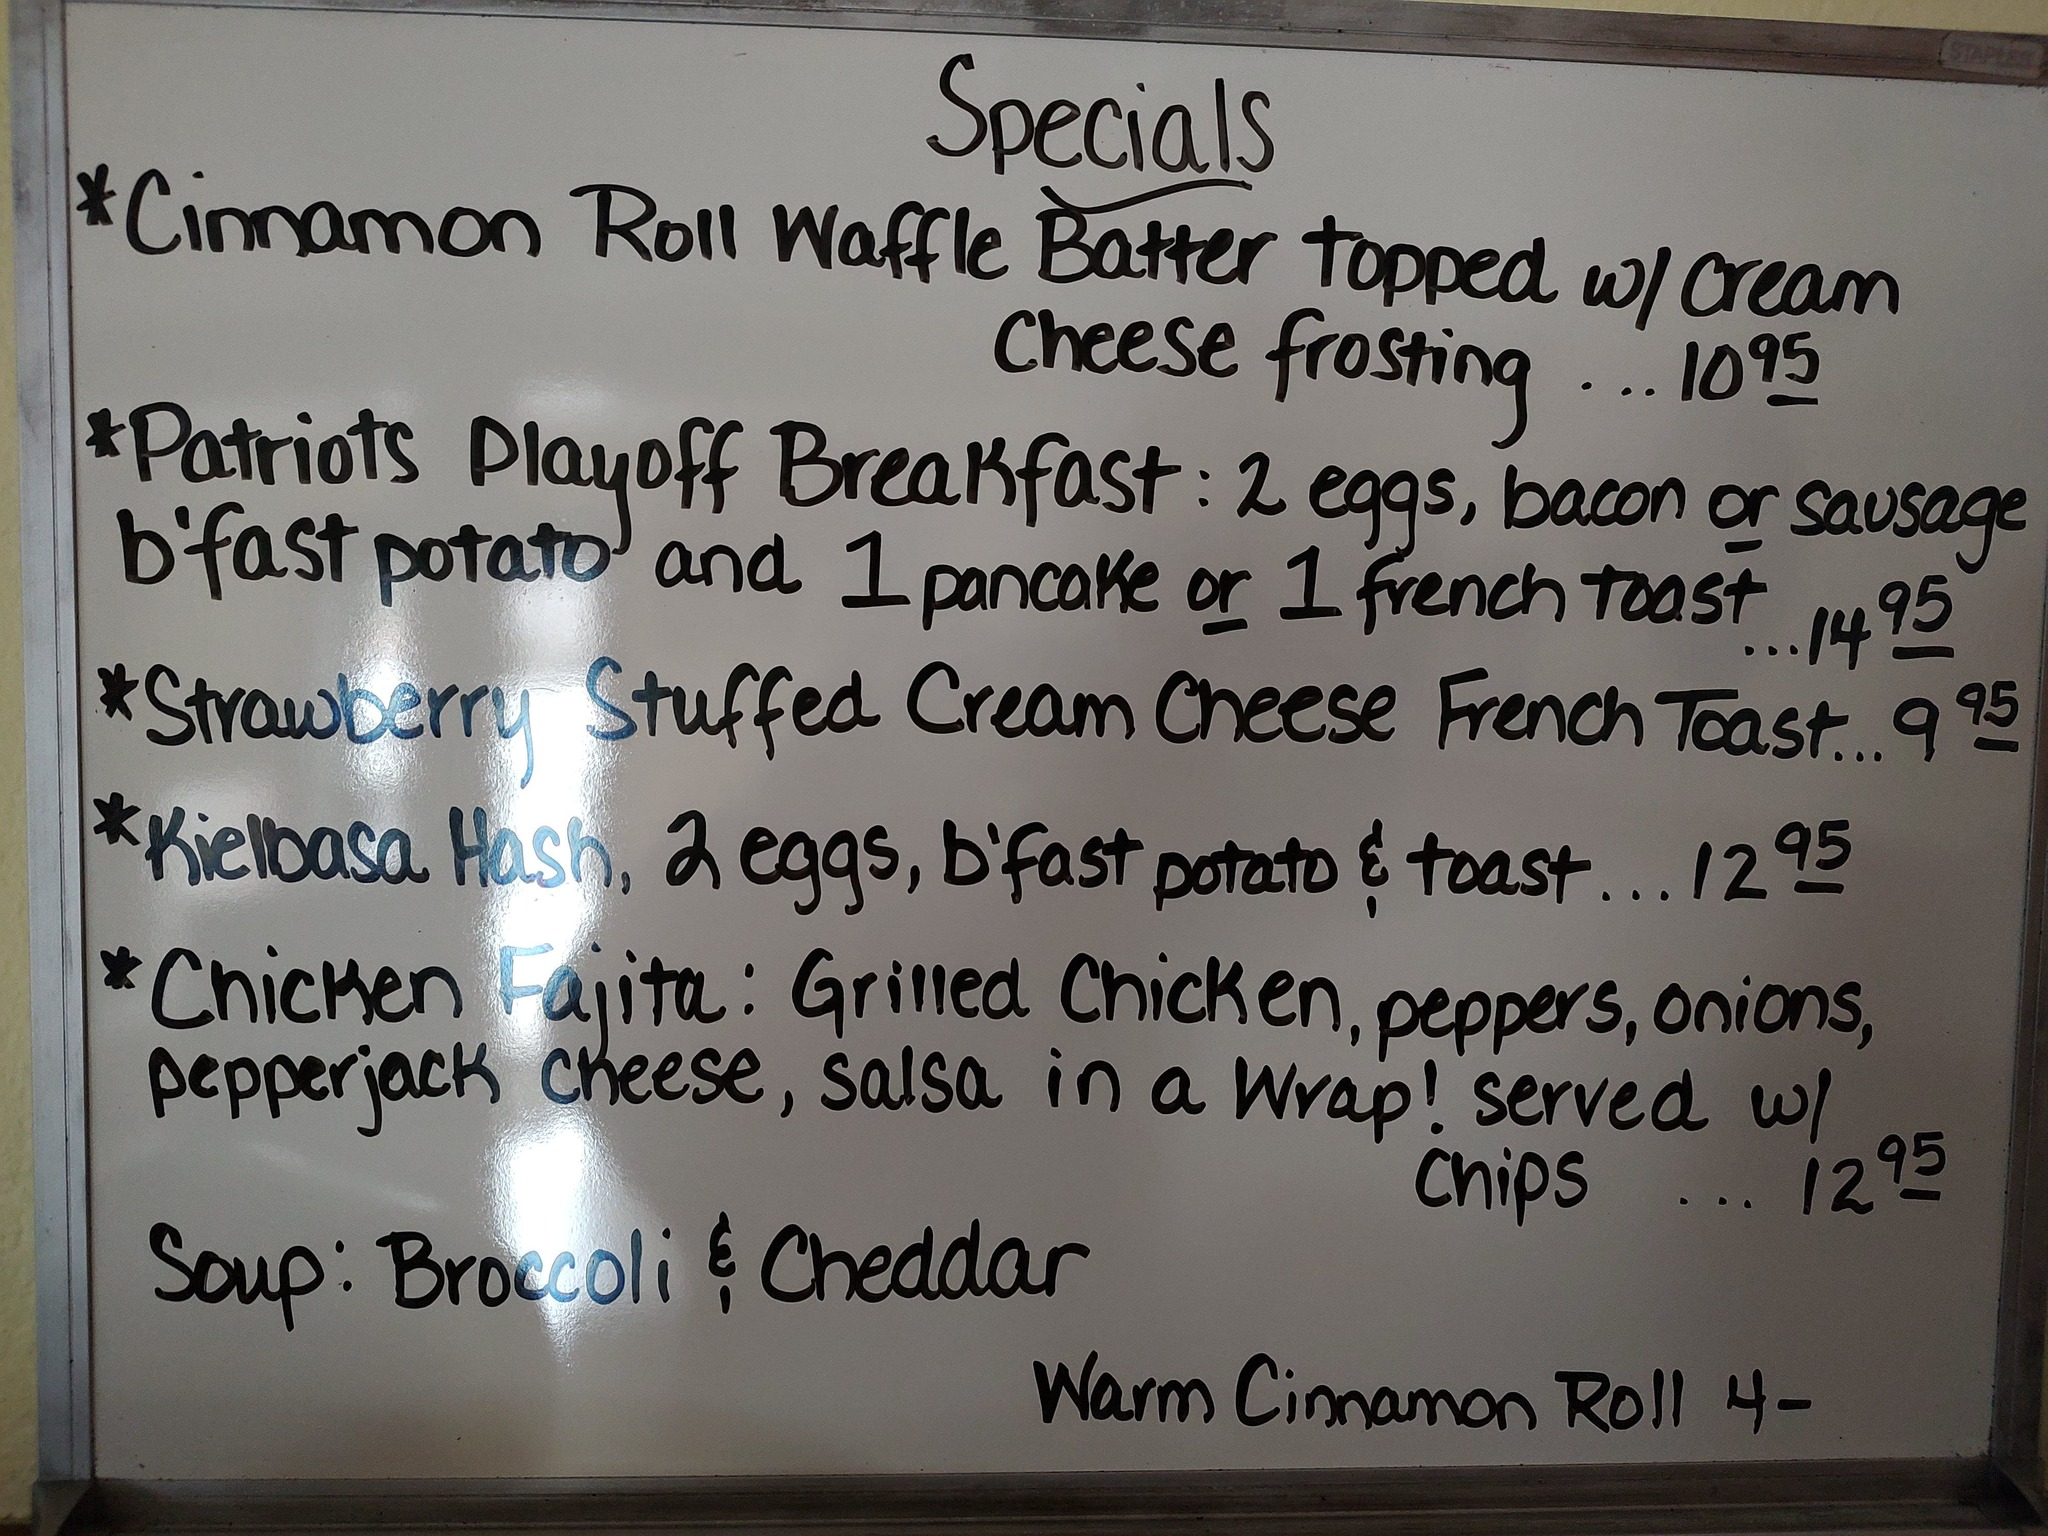 STAPLES
Specials
*Cinnamon Roll Waffle Batter topped w/ Cream
Cheese frosting ... 10 95
*Patriots Playoff Breakfast: 2 eggs, bacon or sausage
b'fast potato and 1 pancake or 1 french toast ...14 95
*Strawberry Stuffed Cream Cheese French Toast... 9 95
*Kielbasa Hash, 2 eggs, b'fast potato & toast ... 12 95
*Chicken Fajita: Grilled Chicken, peppers, onions,
pepperjack cheese, salsa in a Wrap! served w/
Chips ... 12 95
Soup: Broccoli & Cheddar
Warm Cinnamon Roll 4-